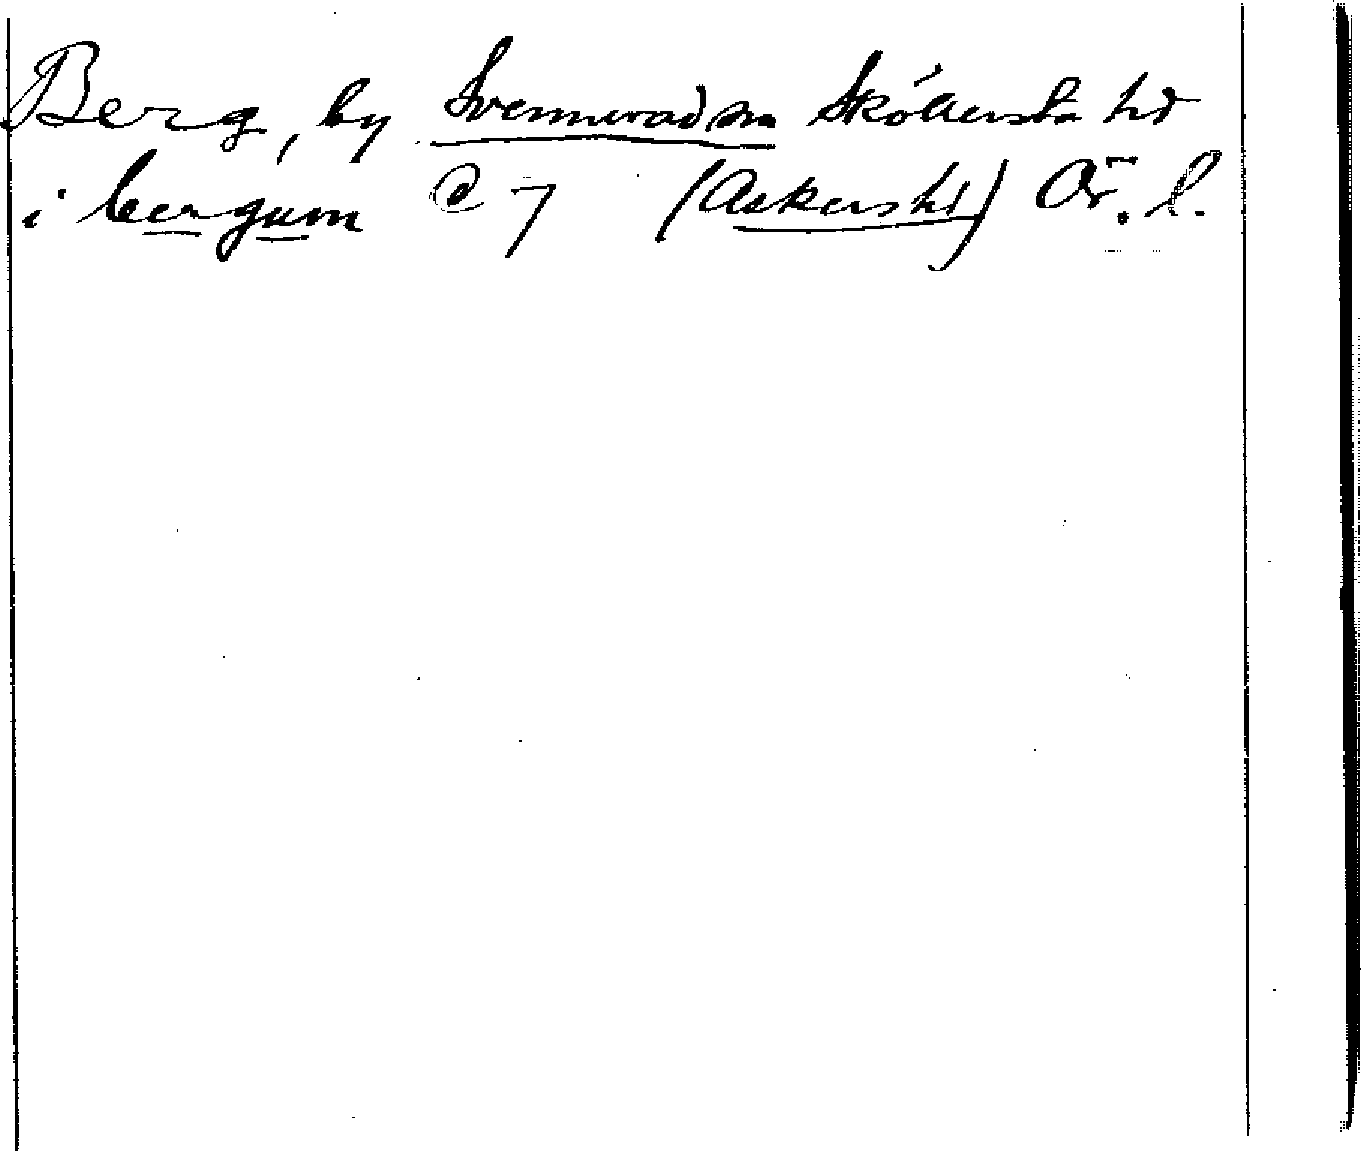 Berg, by Svennevad sn Sköllersta hd
i bergum C 7 (Askers hd) Ör. l.